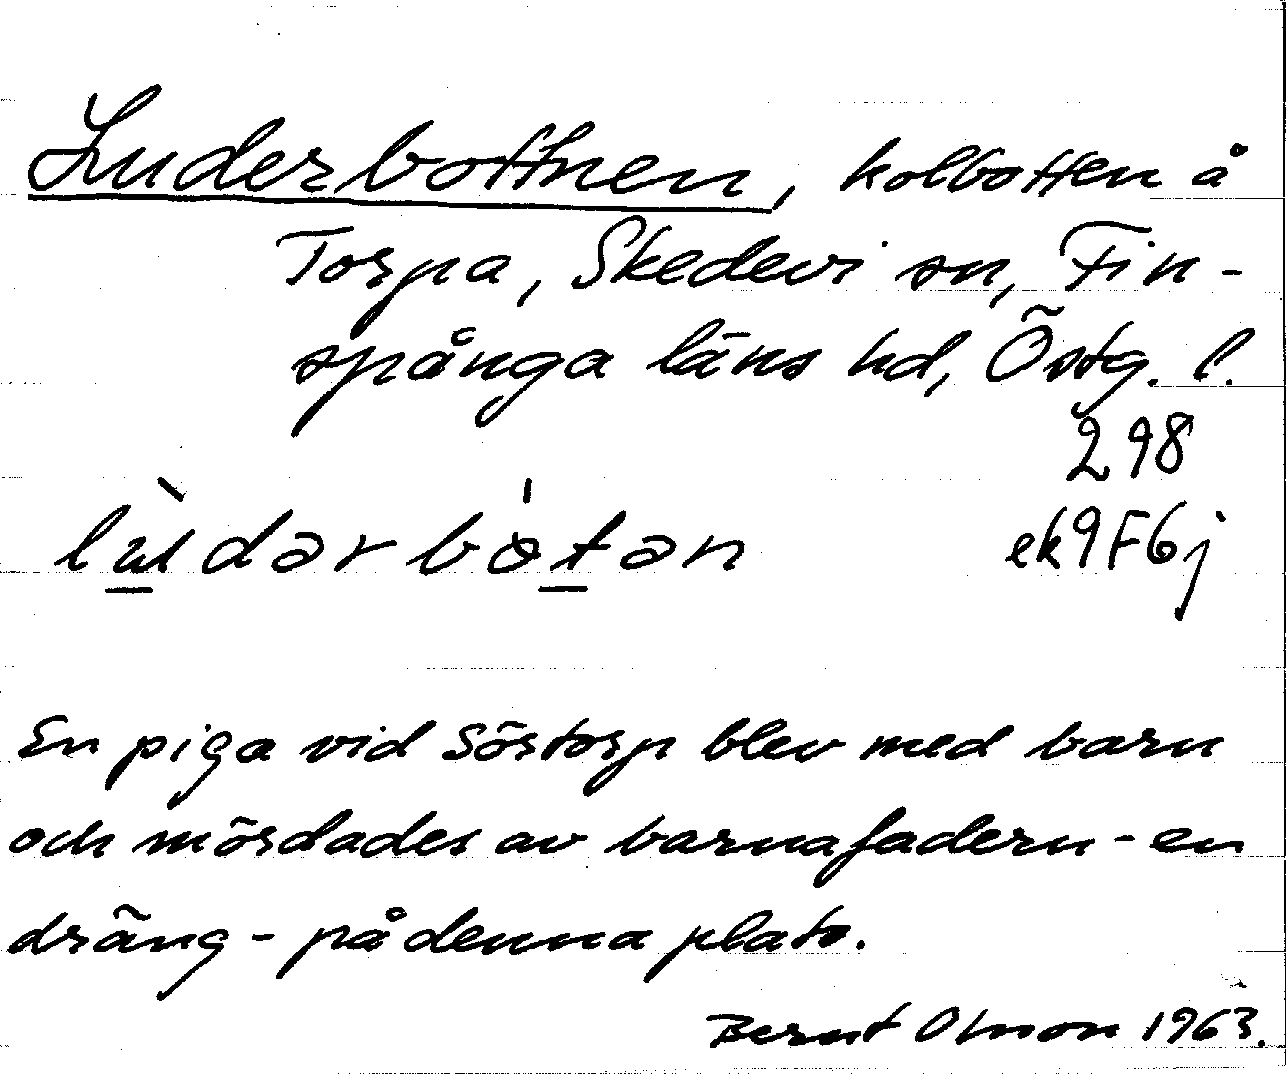 Luderbottnen, kolbotten å
Torpa, Skedevi sn, Fin-
spånga läns hd, Östg. l.
298
lùdərbòtən ek9F6j
En piga vid Sörtorp blev med barn
och mördades av barnafadern - en
dräng - på denna plats.
Bernt Olsson 1963.